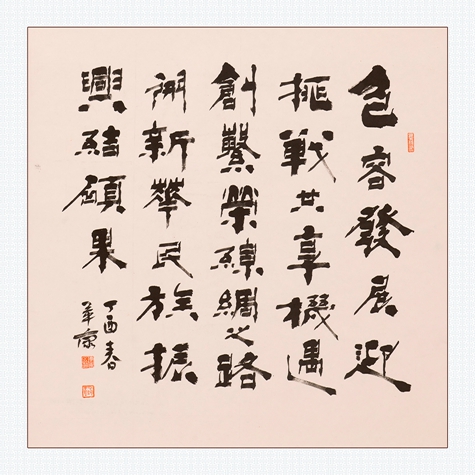 包容發展迎
挑戰共享機遇
創繁榮絲綢之路
開新華民族振
興結碩果
丁酉春
華